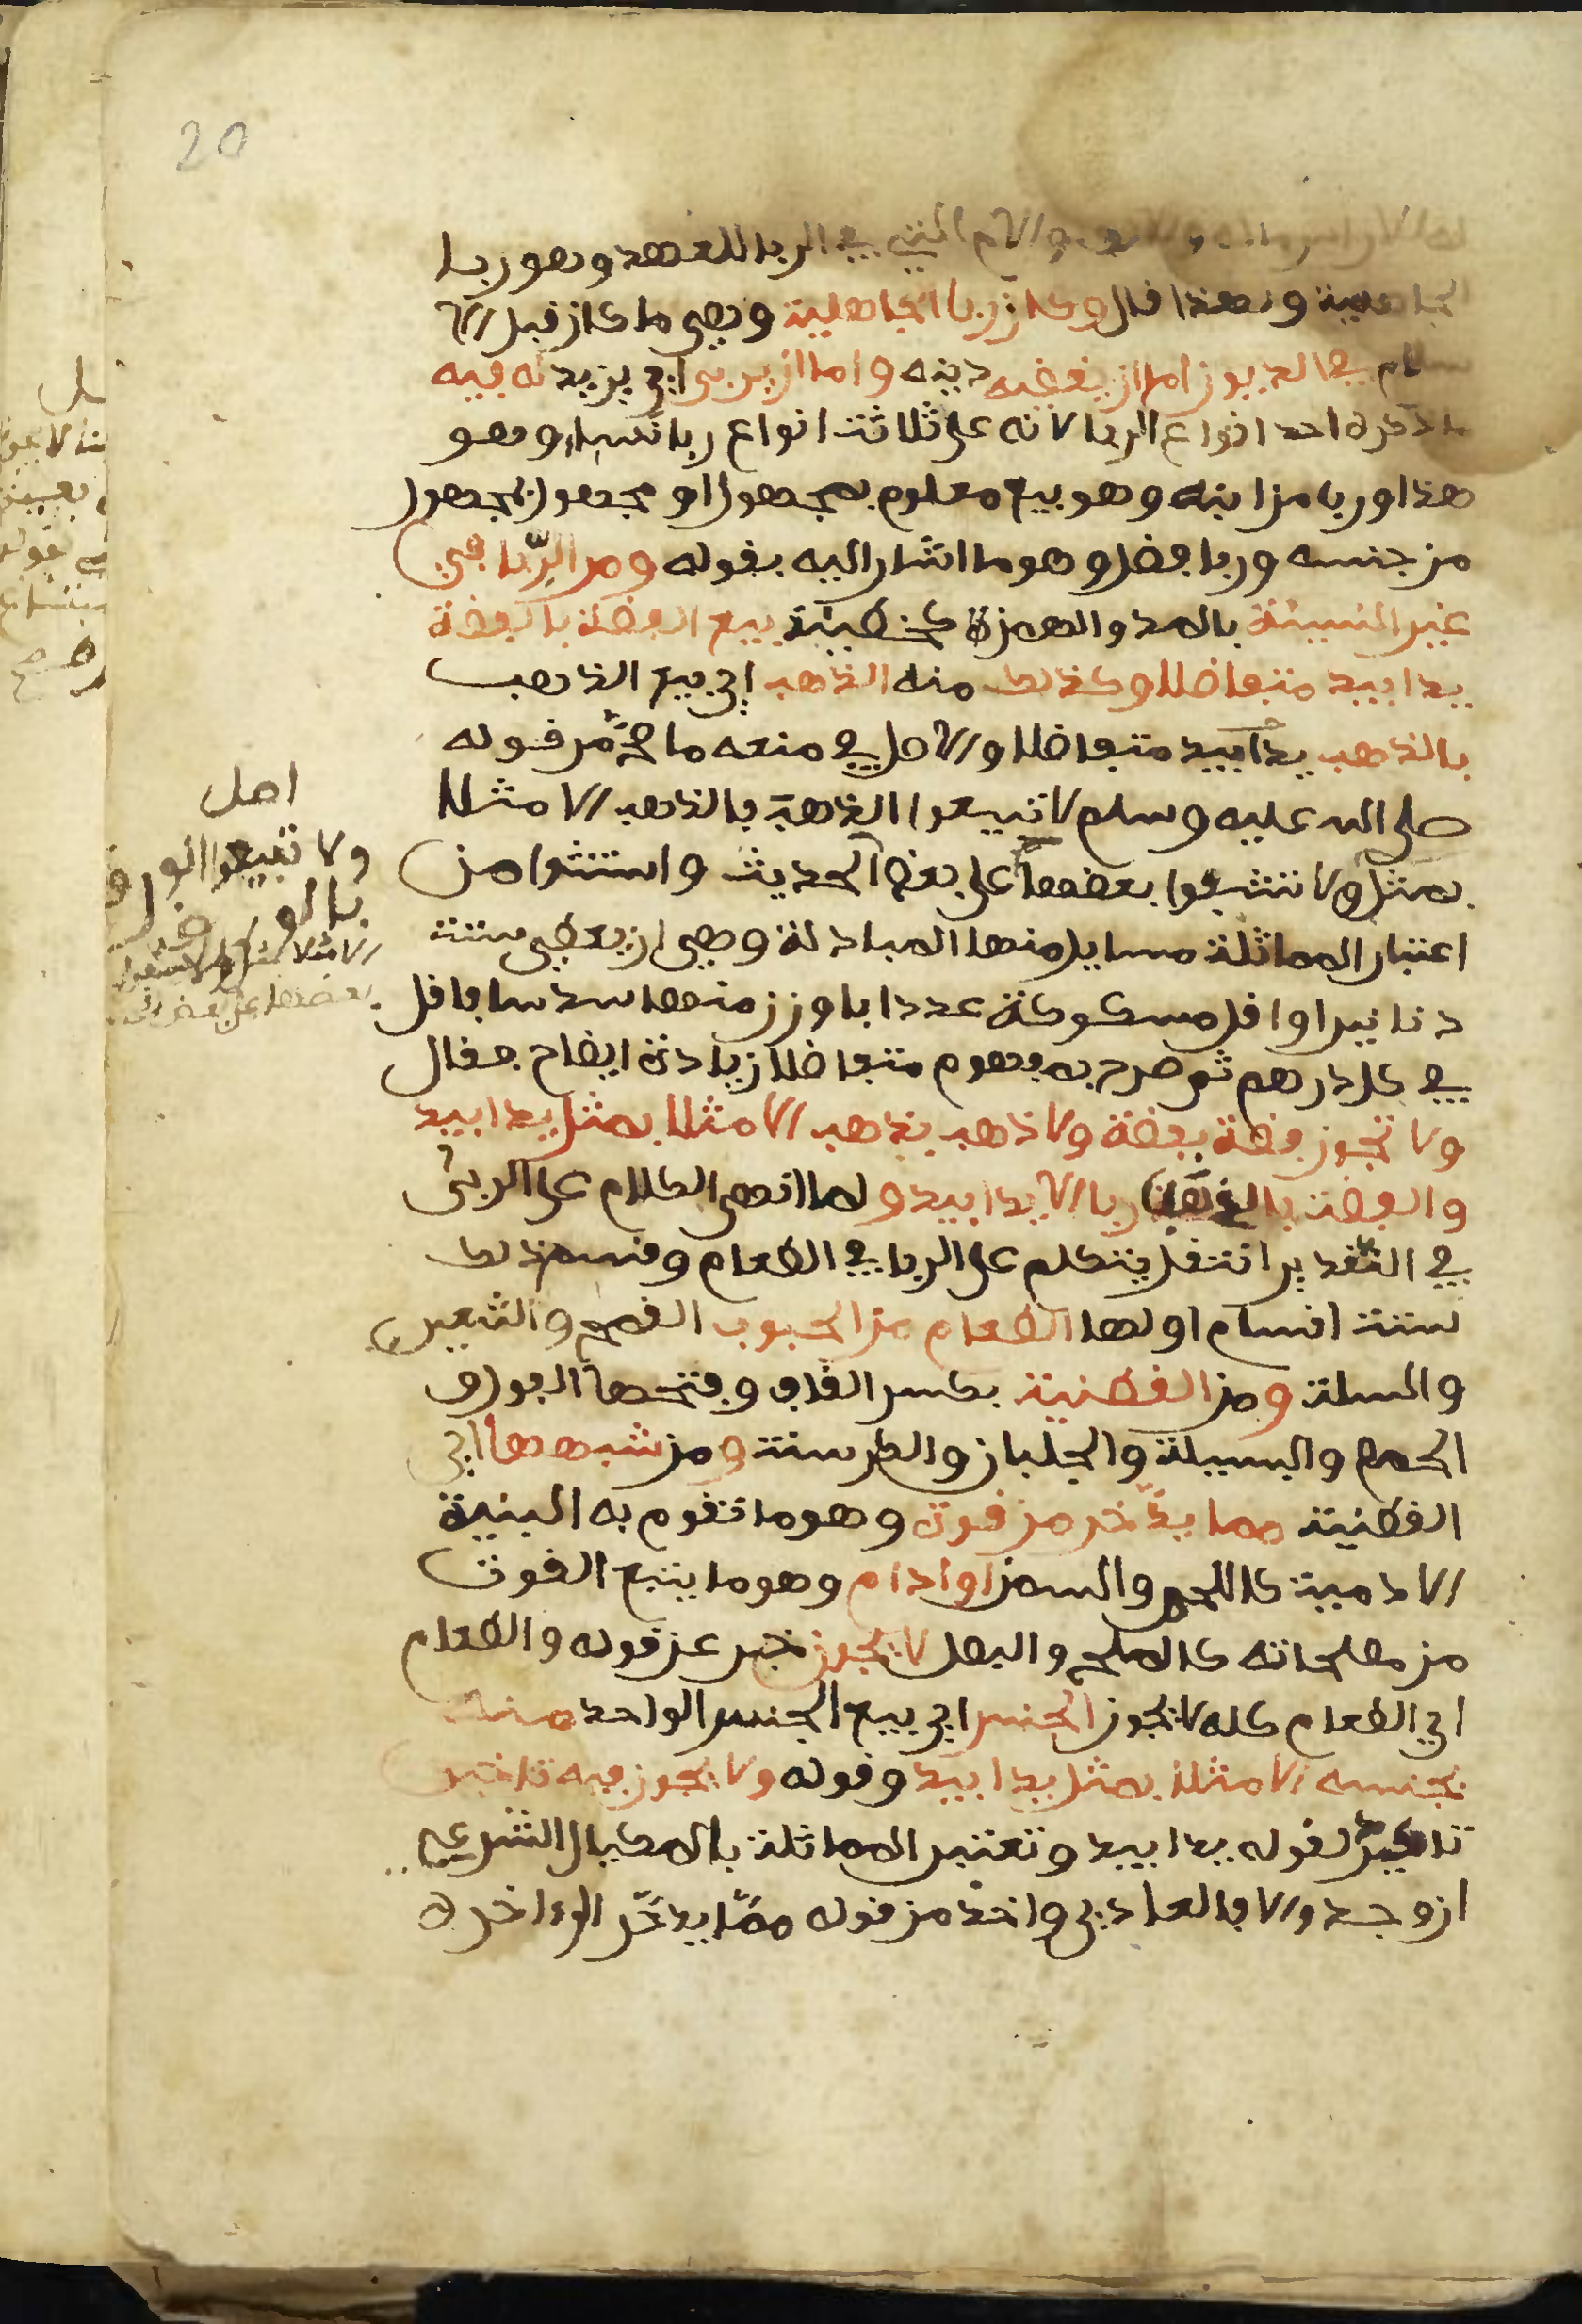 20
والالف التي في الربا للعهد وهو ربا
الجاهلية ولهذا قال وكان ربا الجاهلية وهي ما كان قبل الا
سلام في الديون اما ان يقضيه دينه واما ان يربي اي يزيد له فيه
ما ذكره احد انواع الربا لانه على ثلاثة انواع ربا نساء وهو
هذا وربا مزابنه وهو بيع معلوم بمجهول او مجهول بمجهول
من جنسه وربا فضل وهو ما اشار اليه بقوله ومن الربا في
غير النسيئة بالمد والهمزة كخطيئة بيع الفضة بالفضة
يدا بيد متفاضلا وكذلك منه الذهب اي بيع الذهب
بالذهب يدا بيد متفاضلا والاصل في منعه ما صح من قوله
صلى الله عليه وسلم لا تبيعوا الذهب بالذهب الا مثلا
بمثل ولا تشفوا بعضها على بعض الحديث واستثنوا من
اعتبار المماثلة مسايل منها المبادلة وهي ان يعطي ستة
دنانير او اقل مسكوكة عددا باوزن منها سدسا فاقل
في كل درهم ثم صرح به مفهوم متفاضلا زيادة ايضاح فقال
ولا تجوز فضة بفضة ولا ذهب بذهب الا مثلا بمثل يدا بيد
والفضة بالذهب ربا الا يدا بيد ولما انهى الكلام على الربى
في النقدين انتقل يتكلم على الربا في الطعام وقسم ذلك
ستة اقسام اولها الطعام من الحبوب القمح والشعير
والسلت ومن القطنية بكسر القاف وفتحها الفول و
الحمص والبسيلة والجلبان والكرسنة ومن شبهها اي
القطنية مما يدخر من قوت وهو ما تقوم به البنية
الادمية كاللحم والسمن او ادام وهو ما يتبع القوت
من مصلحاته كالملح والبصل لا يجوز خبر عن قوله والطعام
اي الطعام كله لا يجوز الجنس اي بيع الجنس الواحد منه
بجنسه الا مثلا بمثل يدا بيد وقوله ولا يجوز فيه تاخير
تاكيد لقوله يدا بيد وتعتبر المماثلة بالمكيال الشرعي
ان وجد والا فالعادي واخذ من قوله مما يدخر الى اخره
اصل
ولا تبيعوا الورق
بالورق
الا مثلا بمثل ولا تشفوا
بعضها على بعض